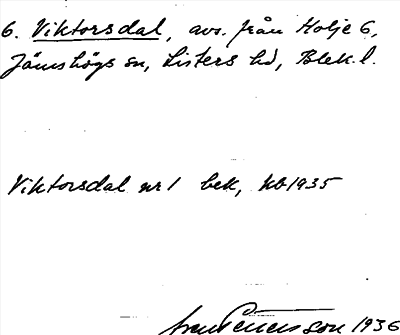 6. Viktorsdal, avs. från Holje 6,
Jämshögs sn, Listers hd, Blek. l.
Viktorsdal nr 1 bek, kb 1935
1936